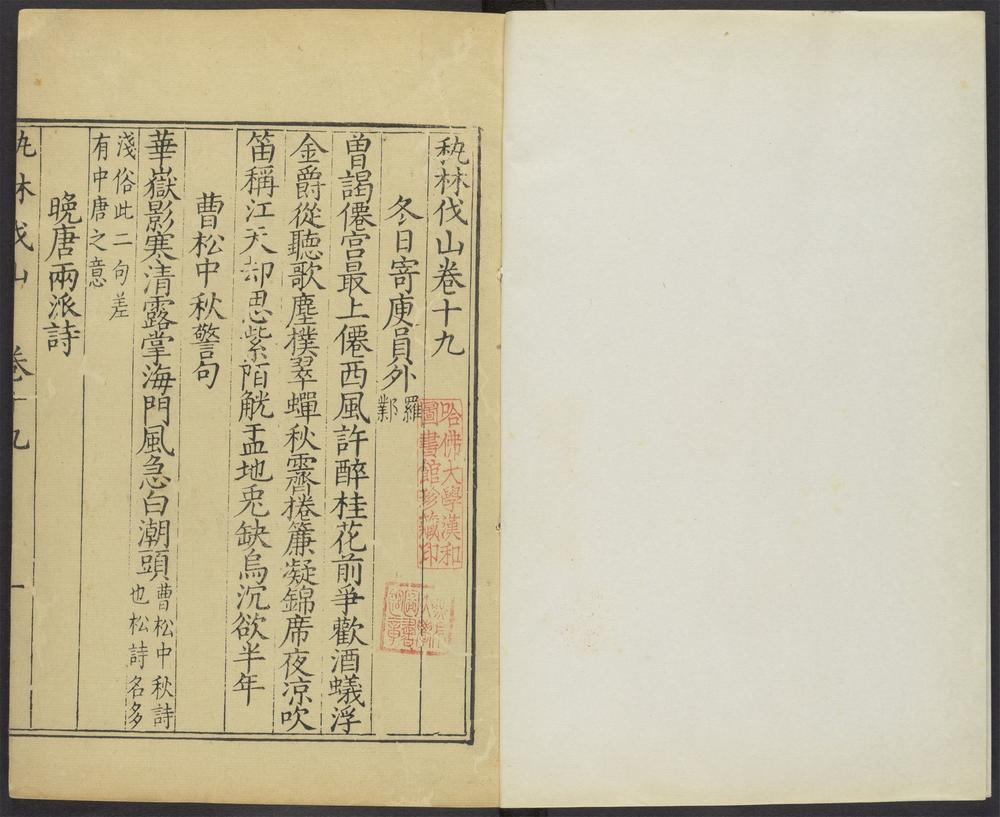 秇林伐山卷十九
冬日寄庾員外 羅鄴
曽謁僊宫最上僊西風許醉桂花前爭歡酒蟻浮
金爵從聽歌塵撲翠蟬秋霽捲簾凝錦席夜凉吹
笛稱江天却思紫陌觥盂地兎缺烏沉欲半年
曹松中秋警句
華嶽影寒清露掌海門風急白潮頭曹松中秋詩
也松詩名多
淺俗此二句差
有中唐之意
晩唐兩派詩
秇林伐山 卷十九 一
哈佛大學漢和
圖書館珍藏印